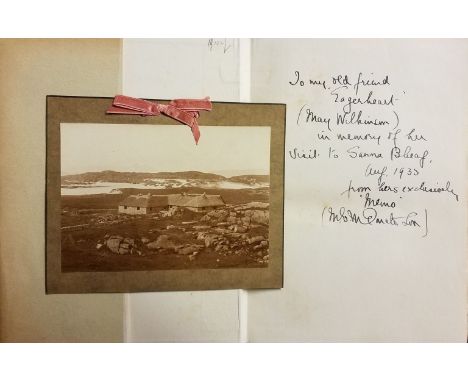 To my old friend
"Eagerheart"
(May Wilkinson)
in memory of her
visit to Sanna Bheag.
Aug. 1933
from hers exclusively
"Memo"